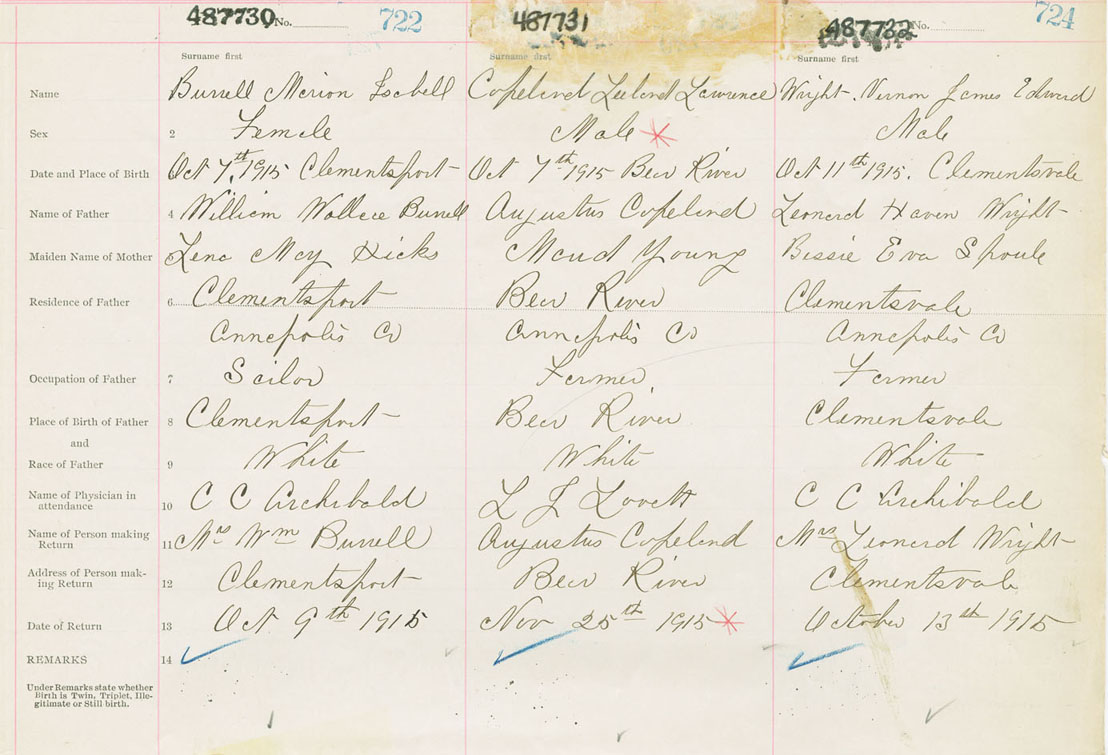 487730 No. 722 487731 487732 No. 724
Surname first Surname first Surname first
Name Burrell Marion Isabell Copeland Leeland Lawrence Wright. Vernon James Edward
Sex 2 Female Male Male
Date and Place of Birth Oct 7th, 1915 Clementsport Oct 7th 1915 Bear River Oct 11th 1915. Clementsvale
Name of Father 4 William Wallace Burrell Augustus Copeland Leonard Haven Wright
Maiden Name of Mother 5 Lena May Hicks Maud Young Bessie Eva Sproule
Residence of Father 6 Clementsport Bear River Clementsvale
Annapolis Co Annapolis Co Annapolis Co
Occupation of Father 7 Sailor Farmer Farmer
Place of Birth of Father 8 Clementsport Bear River Clementsvale
and
Race of Father 9 White White White
Name of Physician in
attendance 10 C C Archibald L J Lovett C C Archibald
Name of Person making
Return 11 Mrs Wm Burrell Augustus Copeland Mrs Leonard Wright
Address of Person mak-
ing Return 12 Clementsport Bear River Clementsvale
Date of Return 13 Oct 9th 1915 Nov 25th 1915 October 13th 1915
REMARKS 14
Under Remarks state whether
Birth is Twin, Triplet, Ille-
gitimate or Still birth.